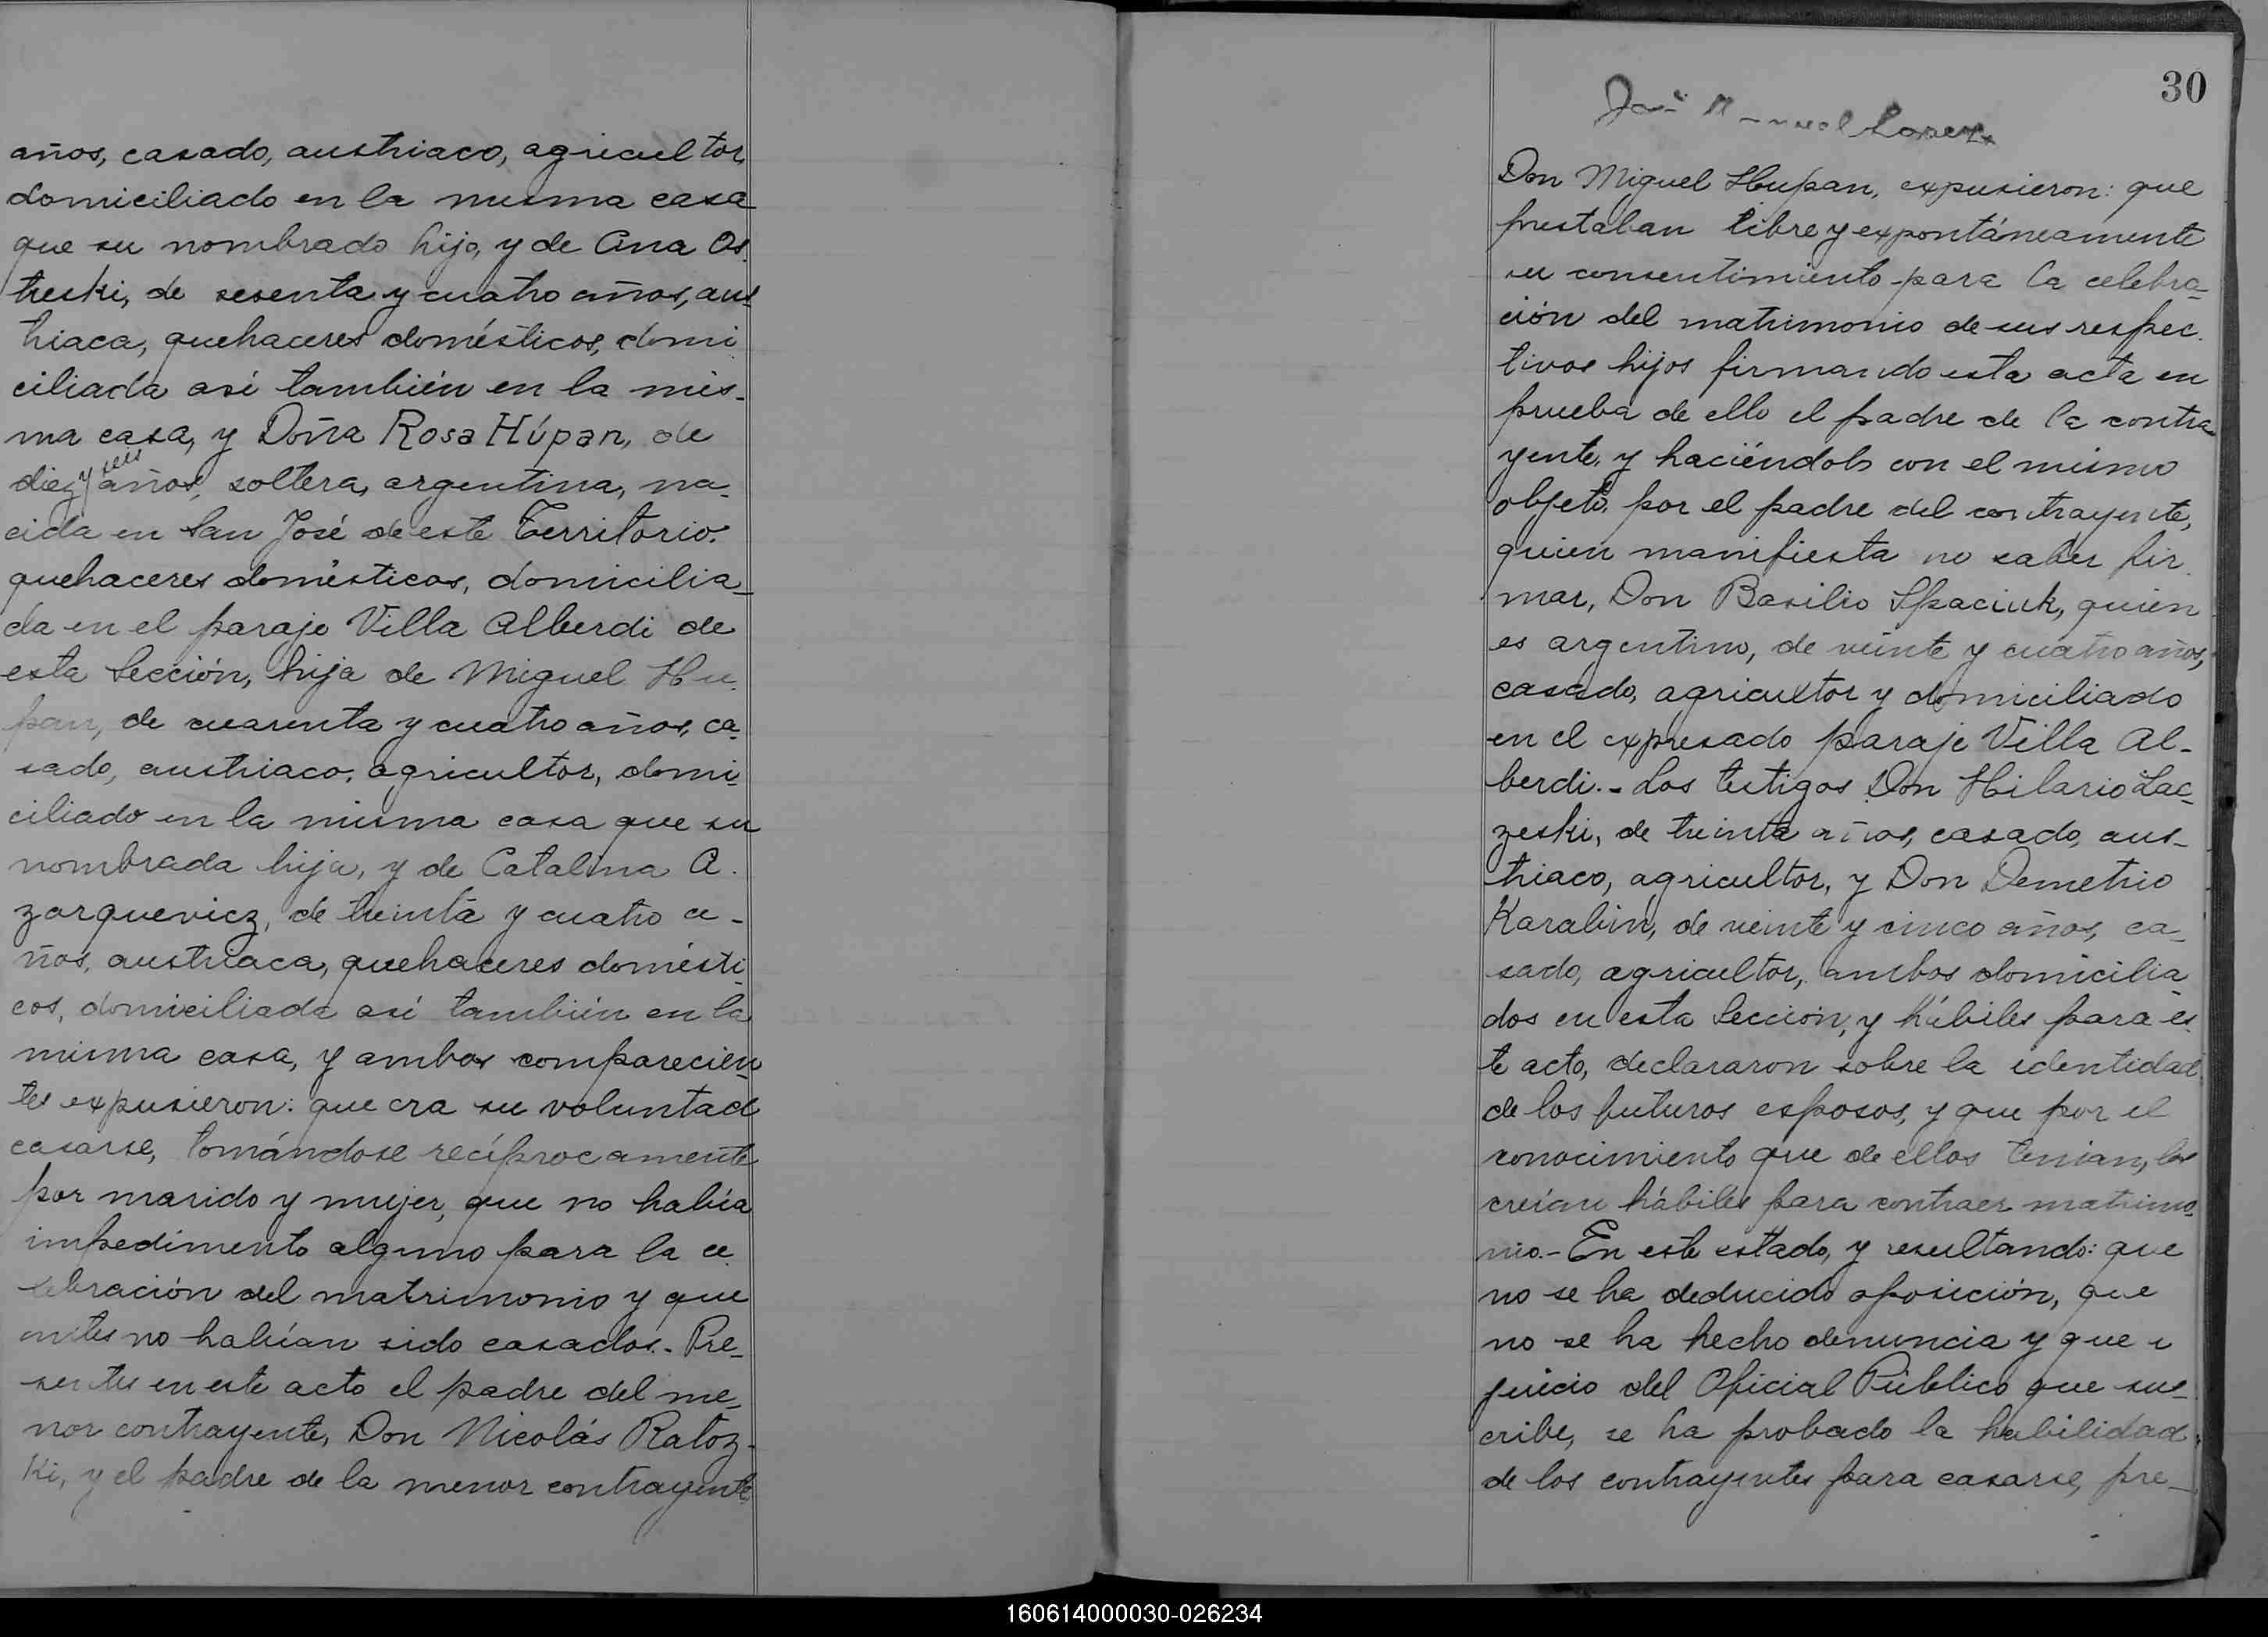 años, casado, austriaco, agricultor,
domiciliado en la misma casa
que su nombrado hijo, y de Ana Os-
treski, de sesenta y cuatro años, aus-
triaca, quehaceres domésticos, domi
ciliada así también en la mis-
ma casa, y Doña Rosa Húpan, de
diez y seis años, soltera, argentina, na-
cida en San José de este Territorio.
quehaceres domésticos, domicilia-
da en el paraje Villa Alberdi de
esta Sección, hija de Miguel Hu-
pan, de cuarenta y cuatro años, ca-
sado, austriaco, agricultor, domi-
ciliado en la misma casa que su
nombrada hija, y de Catalina A.
zarquevicz, de treinta y cuatro a-
ños, austriaca, quehaceres domésti-
cos, domiciliada así también en la
misma casa, y ambos comparecien-
tes expusieron: que era su voluntad
casarse, tomándose recíprocamente
por marido y mujer, que no había
impedimento alguno para la ce-
lebración del matrimonio y que
antes no habían sido casados.- Pre-
sentes en este acto el padre del me-
nor contrayente, Don Nicolás Ratoz-
ki, y el padre de la menor contrayente
30
José Manuel Lopez
Don Miguel Hupan, expusieron: que
prestaban libre y expontáneamente
su consentimiento para la celebra-
ción del matrimonio de sus respec-
tivos hijos firmando esta acta en
prueba de ello el padre de la contra
yente, y haciéndolo con el mismo
objeto, por el padre del contrayente,
quien manifiesta no saber fir-
mar, Don Basilio Spaciuk, quien
es argentino, de veinte y cuatro años,
casado, agricultor y domiciliado
en el expresado paraje Villa Al-
berdi.- Los testigos Don Hilario Lac-
zeski, de treinta años, casado, aus-
triaco, agricultor, y Don Demetrio
Karabin, de veinte y cinco años, ca-
sado, agricultor, ambos domicilia-
dos en esta Sección, y hábiles para es-
te acto, declararon sobre la identidad
de los futuros esposos, y que por el
conocimiento que de ellos tenian, los
creían hábiles para contraer matrimo-
nio.- En este estado, y resultando: que
no se ha deducido oposición, que
no se ha hecho denuncia y que a
juicio del Oficial Público que sus-
cribe, se ha probado la habilidad
de los contrayentes para casarse, pre-
160614000030-026234